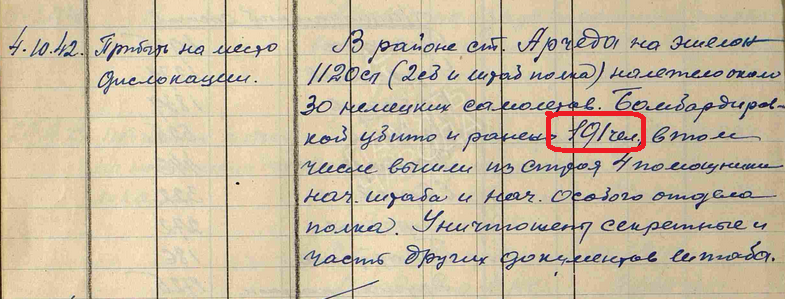 4.10.42. Прибыть на место дислокации.
В районе ст. Арчеда на эшелон
1120сп (2сб и штаб полка) налетело около
30 немецких самолетов. Бомбардиров-
кой убито и ранено 191 чел, в том
числе вышли из строя 4 помощника
нач. штаба и нач. Особого отдела
полка. Уничтожены секретные и
часть других документов штаба.